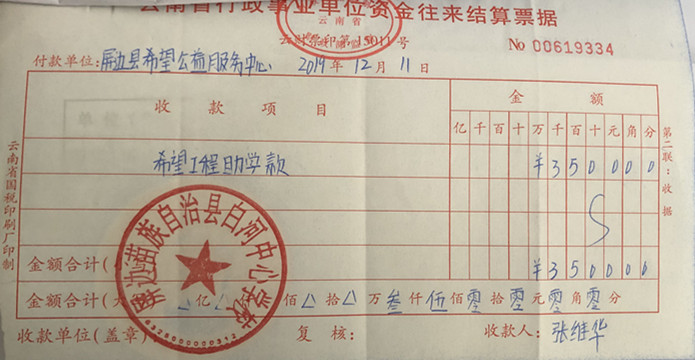 云南省行政事业单位资金往来结算票据
云财票印第15011号
No 00619334
付款单位：屏边县希望公益服务中心 2019年12月11日
收款项目 金额
亿千百十万千百十元角分
希望工程助学款 ¥350000
金额合计（ ¥350000
金额合计（ 亿 佰 拾 万叁仟伍佰零拾零元零角零分
收款单位（盖章） 复核： 收款人：张维华
屏边苗族自治县白河中心学校
第二联：收据
云南省国税印刷厂印制